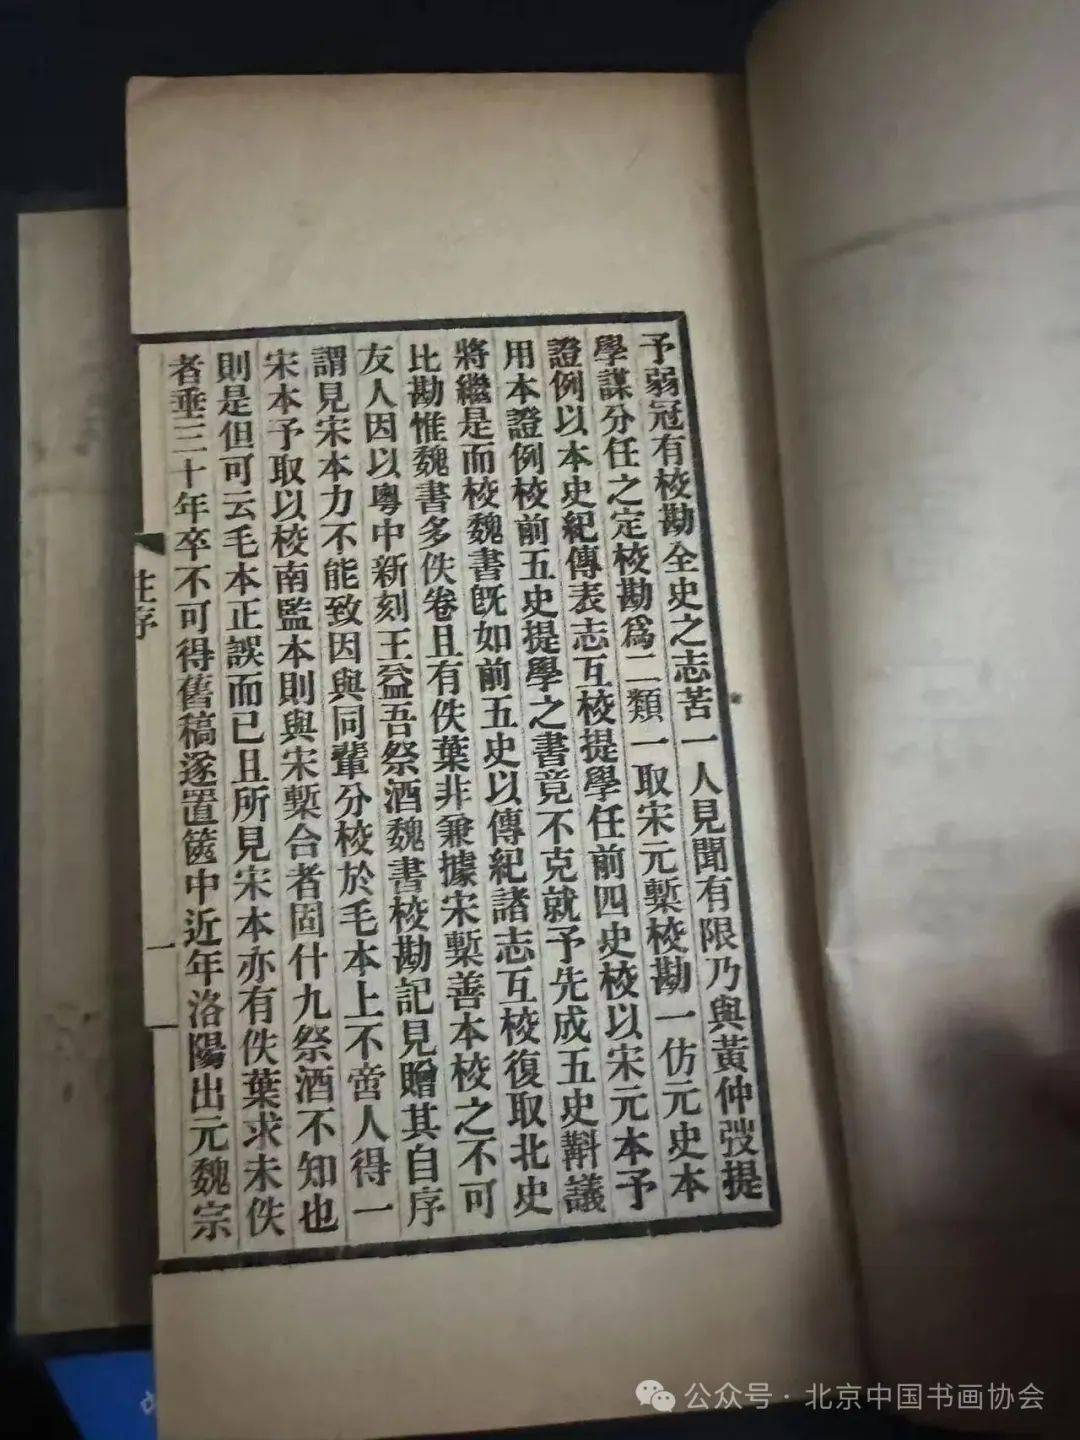 予弱冠有校勘全史之志苦一人見聞有限乃與黃仲弢提
學謀分任之定校勘爲二類一取宋元槧校勘一仿元史本
證例以本史紀傳表志互校提學任前四史校以宋元本予
用本證例校前五史提學之書竟不克就予先成五史斠議
將繼是而校魏書旣如前五史以傳紀諸志互校復取北史
比勘惟魏書多佚卷且有佚葉非兼據宋槧善本校之不可
友人因以粵中新刻王益吾祭酒魏書校勘記見贈其自序
謂見宋本力不能致因與同輩分校於毛本上不啻人得一
宋本予取以校南監本則與宋槧合者固什九祭酒不知也
則是但可云毛本正誤而已且所見宋本亦有佚葉求未佚
者垂三十年卒不可得舊稿遂置篋中近年洛陽出元魏宗
序
一
公众号·北京中国书画协会